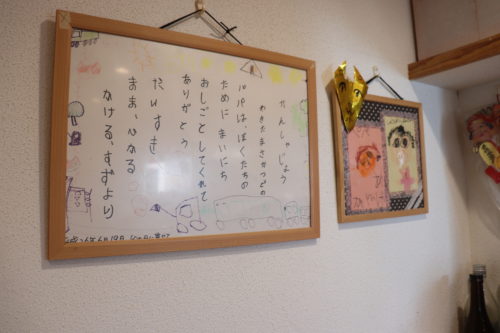 かんしゃじょう
わきたまさかつどの
パパはぼくたちの
ために まいにち
おしごとしてくれて
ありがとう
だいすき
すずより
成26年6月19日